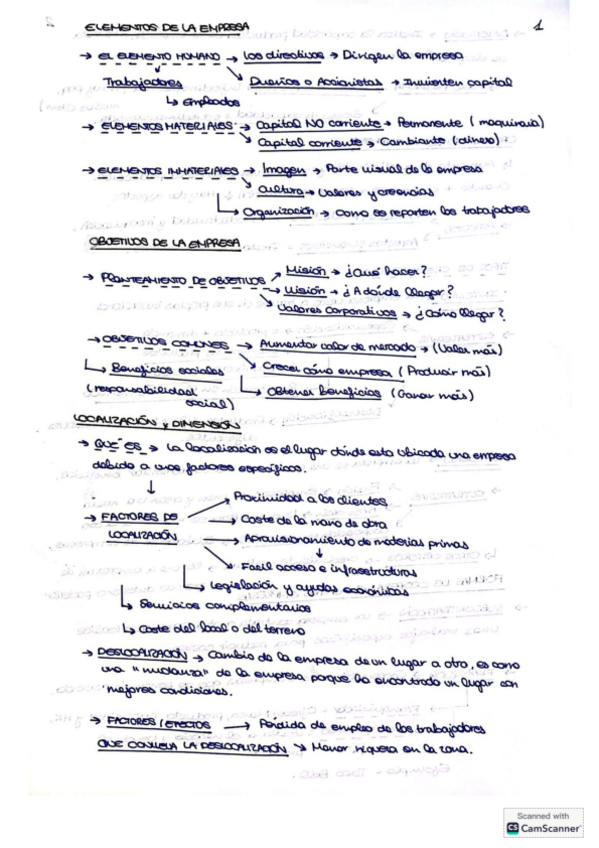 ELEMENTOS DE LA EMPRESA 1
→ EL ELEMENTO HUMANO → Los directivos → Dirigen la empresa
Trabajadores ↘ Dueños o Accionistas → Invierten capital
↳ Empleados
→ ELEMENTOS MATERIALES → Capital NO corriente → Permanente (maquinaria)
↘ Capital corriente → Cambiante (dinero)
→ ELEMENTOS INMATERIALES → Imagen → Parte visual de la empresa
↘ Cultura → Valores y creencias
↳ Organización → Como se reparten los trabajadores
OBJETIVOS DE LA EMPRESA
→ PLANTEAMIENTO DE OBJETIVOS ↗ Misión → ¿Qué hacer?
→ Visión → ¿A dónde llegar?
↘ Valores corporativos → ¿Cómo llegar?
→ OBJETIVOS COMUNES → Aumentar valor de mercado → (Valer más)
↳ Beneficios sociales ↘ Crecer cómo empresa (Producir más)
(responsabilidad ↳ Obtener beneficios (Ganar más)
social)
LOCALIZACIÓN y DIMENSIÓN
→ QUÉ ES → La localización es el lugar dónde esta ubicada una empresa
debido a unos factores específicos.
↓
→ Proximidad a los clientes
→ FACTORES DE → Coste de la mano de obra
LOCALIZACIÓN → Aprovisionamiento de materias primas
↓
↘ Fácil acceso e infraestructuras
↳ Legislación y ayudas económicas
↳ Servicios complementarios
↳ Coste del local o del terreno
→ DESLOCALIZACIÓN → Cambio de la empresa de un lugar a otro, es como
una "mudanza" de la empresa porque ha encontrado un lugar con
mejores condiciones.
→ FACTORES / EFECTOS → Pérdida de empleo de los trabajadores
QUE CONLLEVA LA DESLOCALIZACIÓN → Menor riqueza en la zona.
Scanned with
CS CamScanner